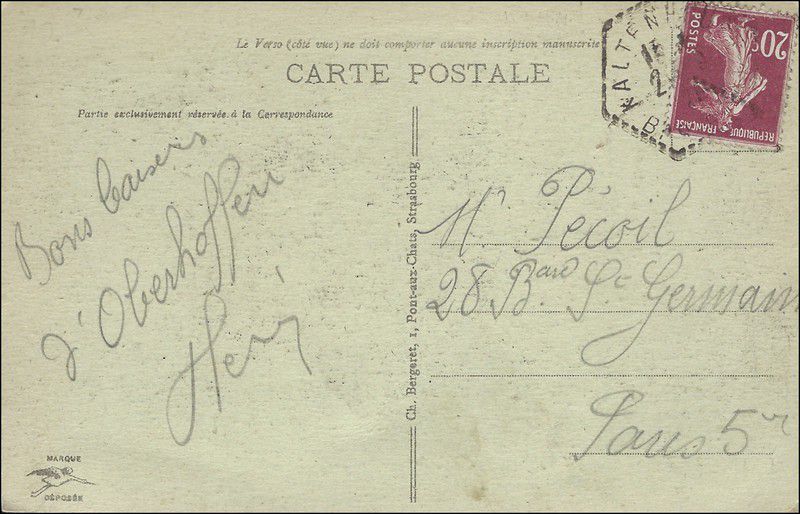 Le Verso (côté vue) ne doit comporter aucune inscription manuscrite
CARTE POSTALE
Partie exclusivement réservée à la Correspondance
Bons baisers
d'Oberhoffen
Ch. Bergeret, 1, Pont-aux-Chats, Strasbourg
Mr Pécoil
28 Bard St Germain
Paris 5
KALTEN
20c
POSTES
REPUBLIQUE FRANÇAISE
MARQUE
DÉPOSÉE